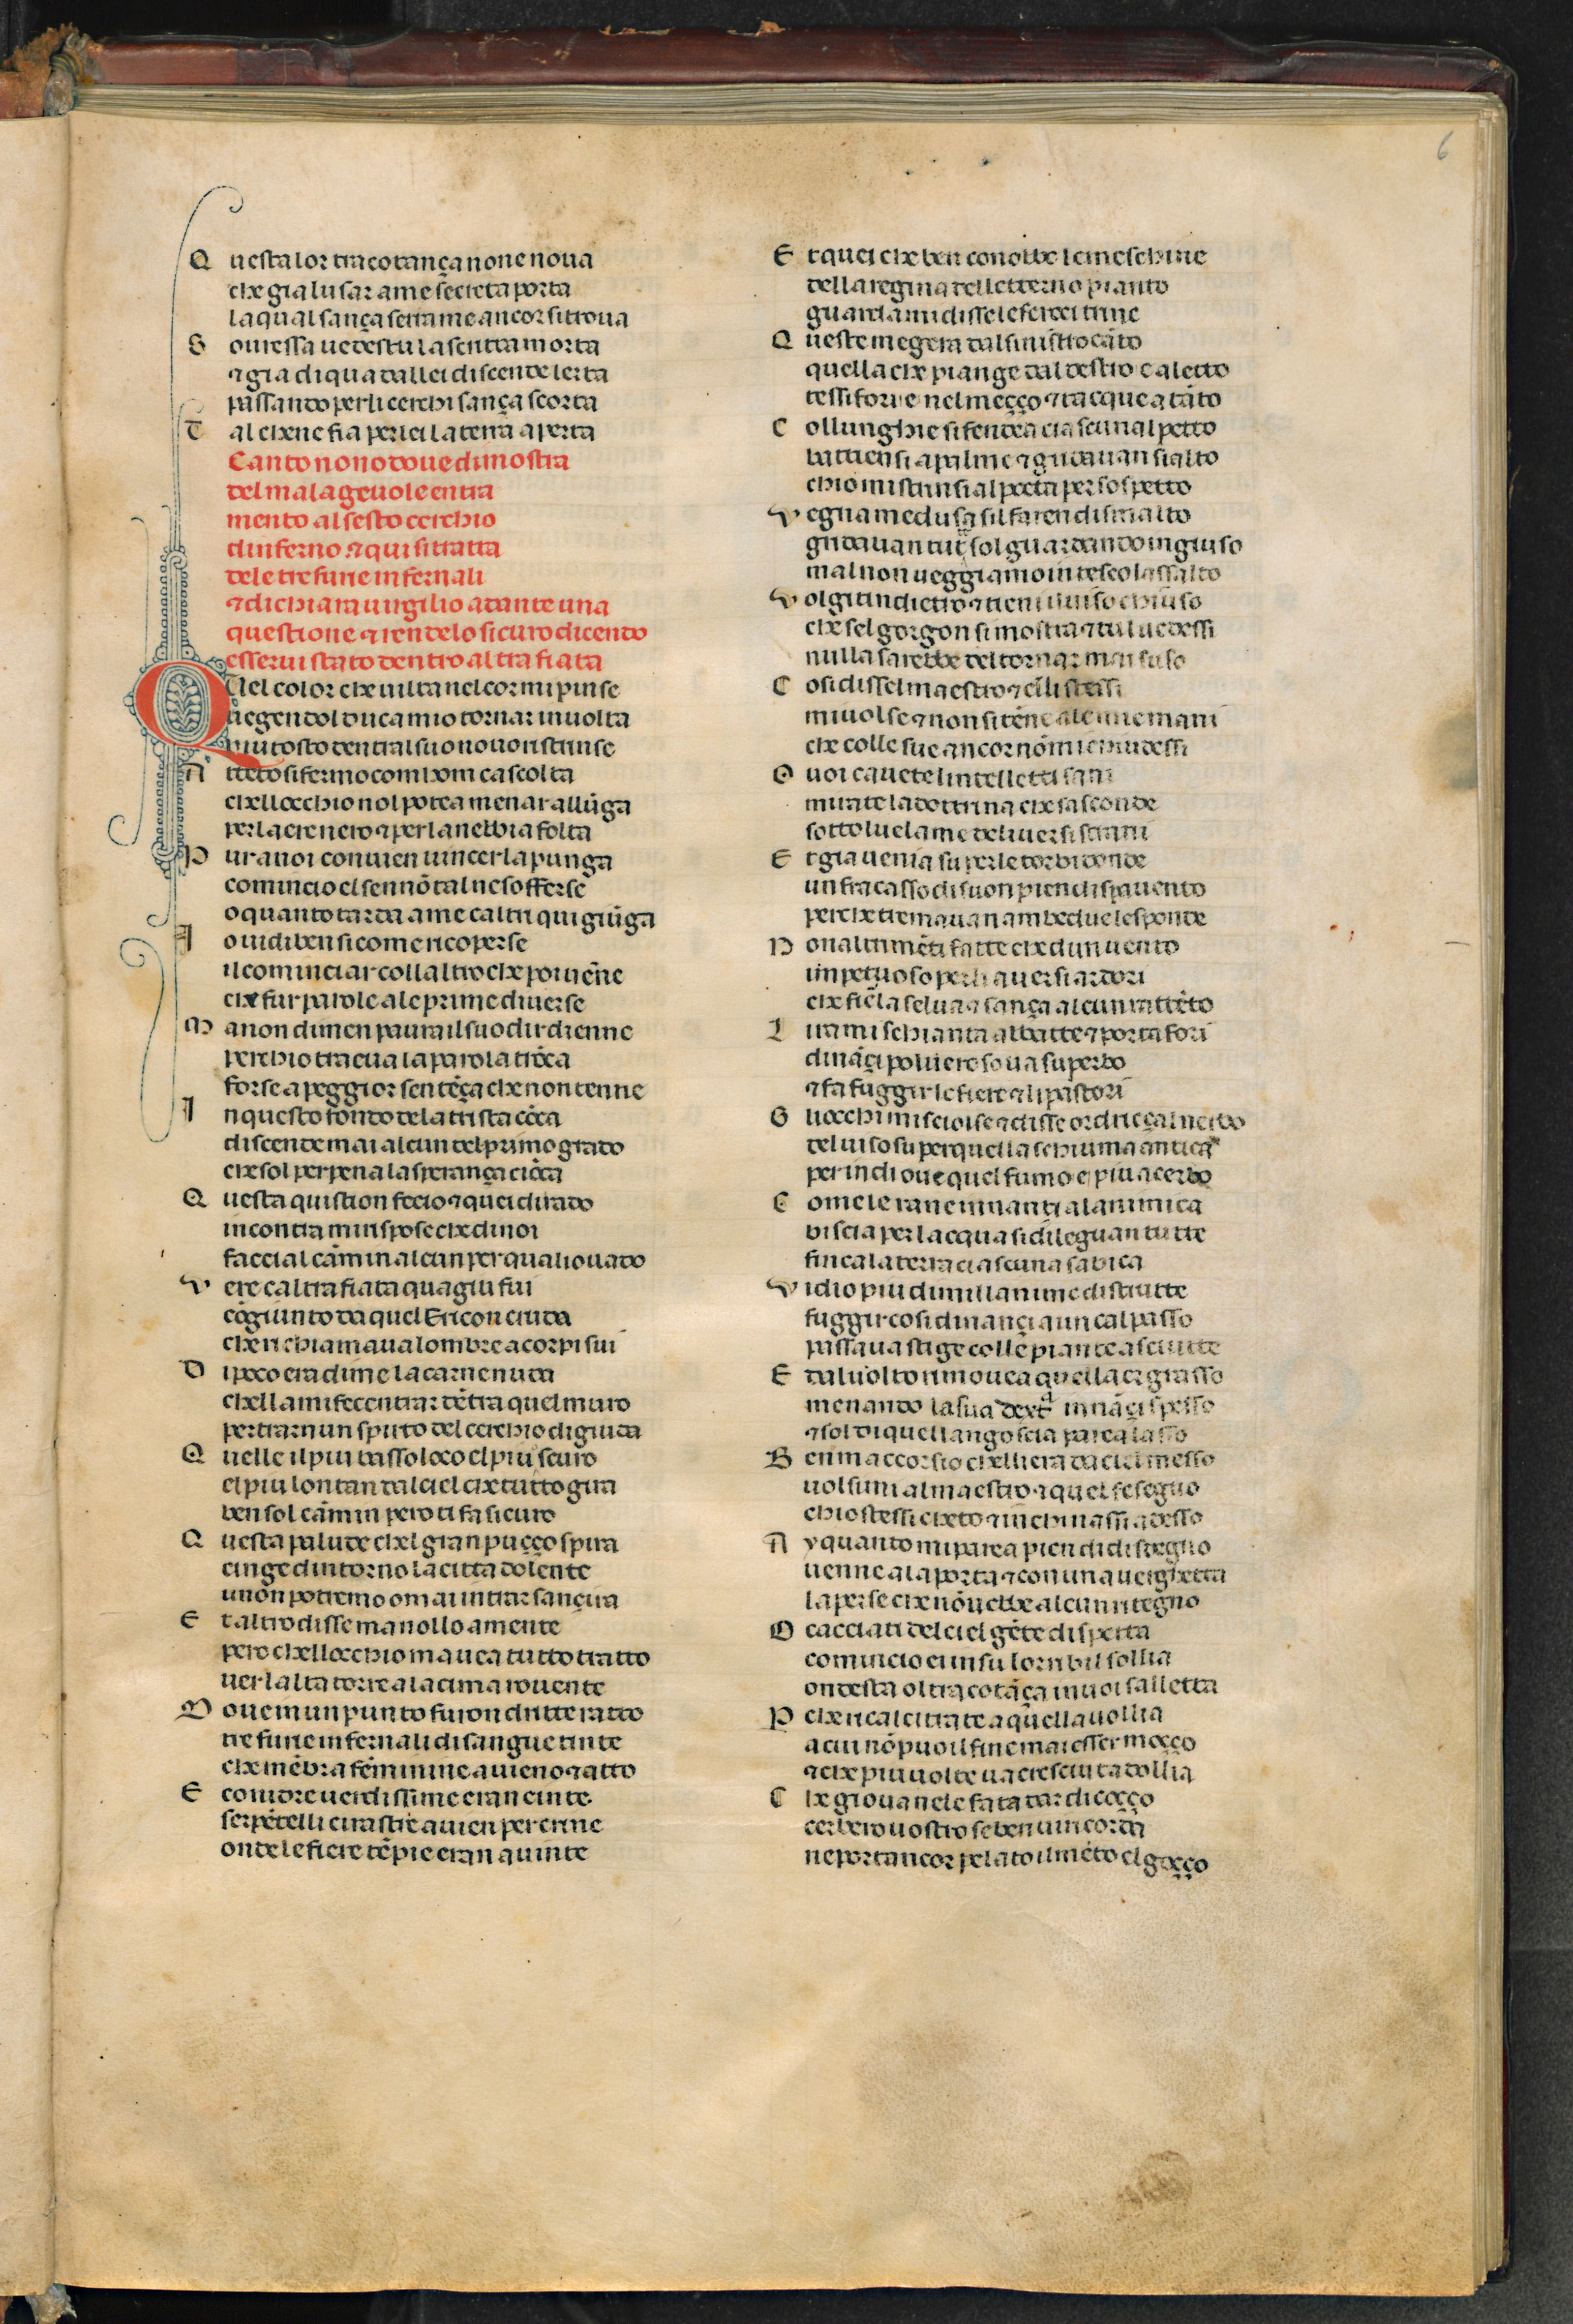 6
Questa lor tracotança non e noua
che gia lusar a me secreta porta
la qual sança serrame ancor si troua
Souressa uedestu la scritta morta
⁊ gia di qua da llei discende lerta
passando per li cerchi sança scorta
Tal che ne fia per lei la terra aperta
Canto nono doue dimostra
del malageuole entra
mento al sesto cerchio
dinferno. ⁊ qui si tratta
dele tre furie infernali
⁊ dichiara uirgilio a dante una
questione ⁊ rendelo sicuro dicendo
esserui stato dentro altra fiata
Quel color che uilta nel cor mi pinse
uegendol duca mio tornar in uolta
piu tosto dentral suo nouo ristrinse
Atteto si fermo com hom cascolta
chellocchio nol potea menar allūga
per laere nero ⁊ per la nebbia folta
Pur a noi conuien uincer la punga
comincio el sennō tal ne sofferse
o quanto tarda a me caltri qui giūga
Io uidi ben si come ricoperse
il cominciar collaltro che poi uēne
che fur parole ale prime diuerse
Ma non dimen paura il suo dir dienne
perchio traeua la parola trōca
forse a peggior sentēça che non tenne
In questo fondo dela trista cōca
discende mai alcun del primo grado
che sol per pena la sperança ciōca
Questa quistion feci o ⁊ quei di rado
incontra mi rispose che di noi
faccial cāmin alcun per qual io uado
Vere caltra fiata qua giu fui
cōgiunto da quel Ericon cruda
che richiamaua lombre a corpi sui
Di poco era di me la carne nuda
chella mi fecentrar dētra quel muro
per trarnun spirto del cerchio di giuda
Quelle il piu basso loco el piu scuro
el piu lontan dal ciel che tutto gira
ben sol cāmin pero ti fa sicuro
Questa palude chel gran puçço spira
cinge dintorno la citta dolente
u nōn potremo omai intrar sançira
Et altro disse ma nollo a mente
pero chellocchio mauea tutto tratto
uer lalta torre a la cima rouente
Doue in un punto furon dritte ratto
tre furie infernali di sangue tinte
che mēbra feminine auieno ⁊ atto
E con idre uerdissime eran cinte.
serpētelli cirastre auien per crine
onde le fiere tēpie eran auinte
Et quei che ben conobbe le meschine
della regina delletterno pianto
guarda mi disse le feroci trine
Queste megera dal sinistro cāto
quella che piange dal destro e aletto
tessifon e nel meçço ⁊ tacque a tāto
Collunghie si fendea ciascuna l petto
battiensi a palme ⁊ gridauan si alto
chio mi strinsi al poeta per sospetto
Vegna medusa sil faren di smalto
gridauan tutte sol guardando in giuso
mal non ueggiamo in teseo lassalto
Volgiti ndietro ⁊ tieni il uiso chiuso
che sel gorgon si mostra ⁊ tu l uedessi
nulla sarebbe del tornar mai suso
Cosi dissel maestro ⁊ elli stessi
mi uolse ⁊ non si tēne ale mie mani
che colle sue ancor nō mi chiudessi
O uoi cauete lintelletti sani
mirate la dottrina che sasconde
sottol uelame deli uersi strani
Et gia uenia su per le torbidonde
un fracasso di suon pien di spauento
perche tremauan ambedue le sponde
Non altrimēti fatto che dun uento
impetuoso per li auersi ardori
che fier la selua ⁊ sança alcun rattēto
I rami schianta abbatte ⁊ porta fori
dināçi polueroso ua superbo
⁊ fa fuggir le fiere ⁊ li pastori
Gli occhi mi sciolse ⁊ disse or driçal nerbo
del uiso su per quella schiuma antica
per indi oue quel fumo e piu acerbo
Come le rane innançi ala nimica
biscia per lacqua si dileguan tutte
fin cala terra ciascuna sabica
Vidio piu di mill anime distrutte
fuggir cosi dinançi a un cal passo
passaua stige colle piante asciutte
E dal uolto rimouea quella er grasso
menando la sua dextra innāçi spesso
⁊ sol di quellangoscia parea lasso
Ben maccorsio chelliera da ciel messo
uolsimi al maestro ⁊ quel fe segno
chio stessi cheto ⁊ inchinassi a desso
Ay quanto mi parea pien di disdegno
uenne a la porta ⁊ con una uerghetta
laperse che nō uebbe alcun ritegno
O cacciati del ciel gēte dispetta
comincio ei in su lorribil sollia
ondesta oltracotāça in uoi salletta
Perche ricalcitrate a quella uollia
a cui nō puo il fine mai esser moçço
⁊ che piu uolte ua cresciuta dollia
Che gioua nele fata dar di coçço
cerbero uostro se ben ui ricorda
ne porta ncor pelato il mēto el goçço